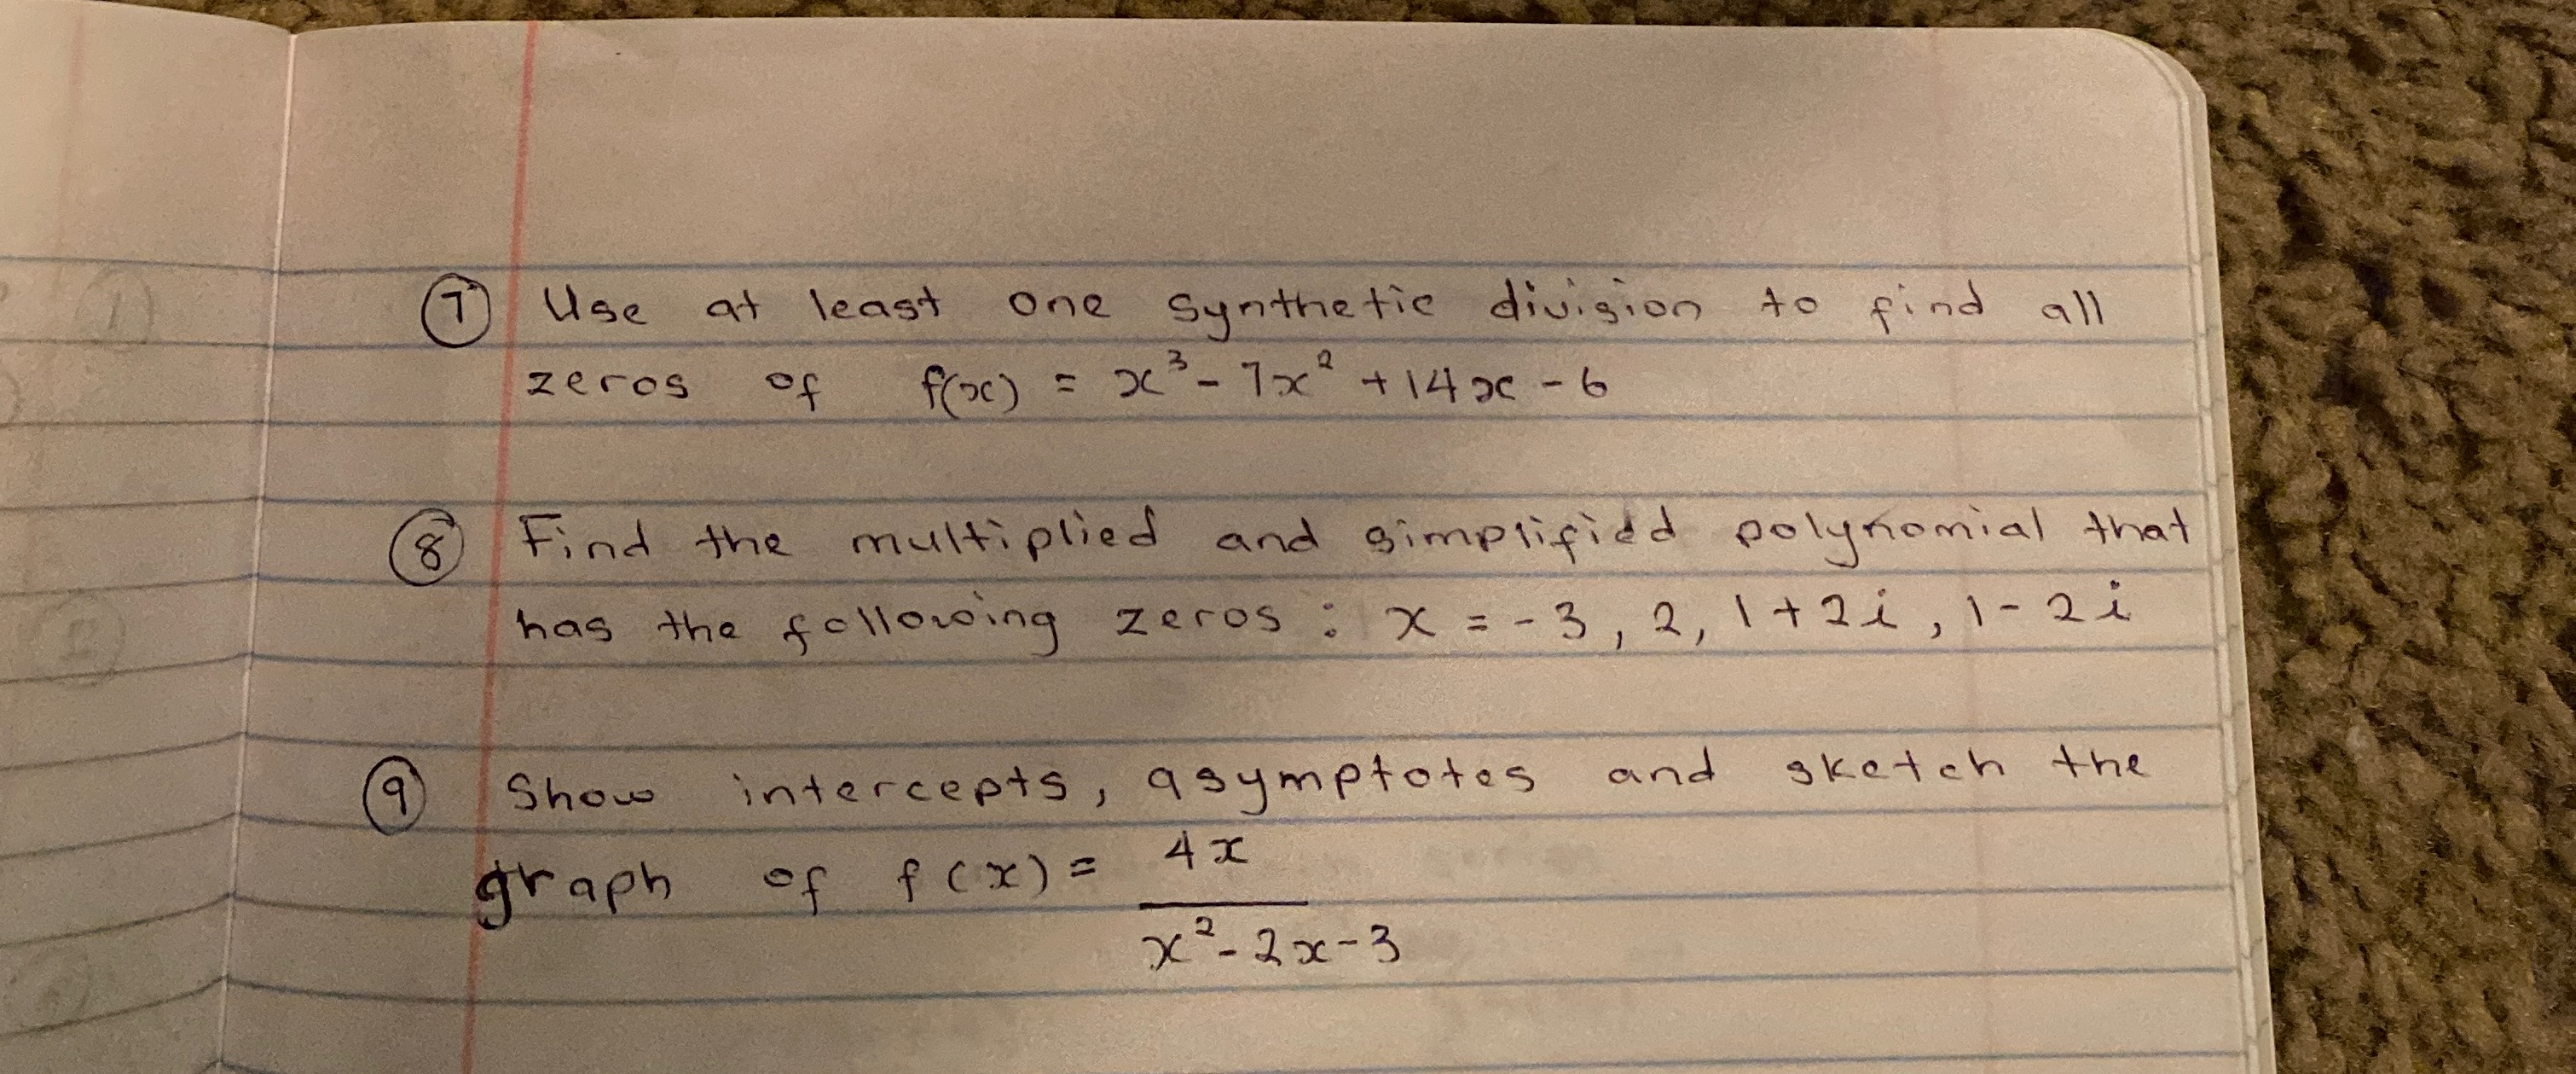 ⑦ Use at least one synthetic division to find all
zeros of f(x) = x³ - 7x² + 14x - 6
⑧ Find the multiplied and simplified polynomial that
has the following zeros : x = -3, 2, 1+2i, 1-2i
⑨ Show intercepts, asymptotes and sketch the
graph of f(x) = 4x
x² - 2x - 3